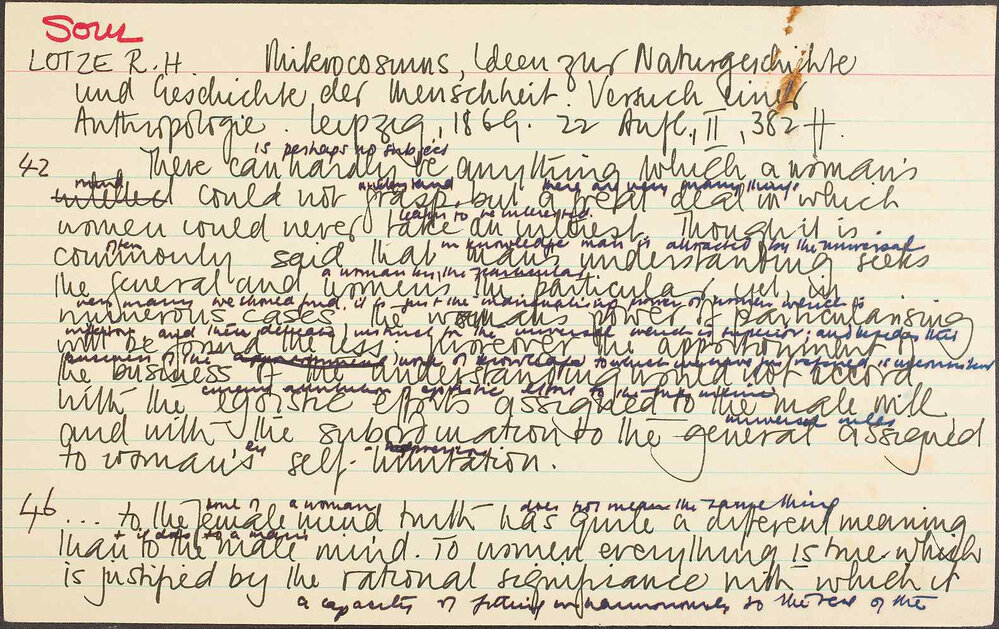 Soul
LOTZE R. H. Mikrocosmus, Ideen zur Naturgeschichte
und Geschichte der Menschheit. Versuch einer
Anthropologie. Leipzig, 1869. 22 Aufl., II, 382 ff.
is perhaps no subject
42 There can hardly be anything which a woman's
mind understand there are very many things
intellect could not grasp, but a great deal in which
learn to be interested.
women could never take an interest. Though it is
often in knowledge man is attracted by the universal
commonly said that man's understanding seeks
a woman by the particular
the general and women's the particular, yet, in
very many we should find it is just the individualising power of women which is
numerous cases the woman's power of particularising
inferior and their instinct for the universal which is superior; and besides this
will be found the less. Moreover the apportionment of
business of the work of knowledge to which we have referred is inconsistent
the business of the understanding would not accord
egoistic efforts to the
with the egoistic efforts assigned to the male will
universal rules
and with the subordination to the general assigned
by
to woman's self-limitation.
soul of a woman does not mean the same thing
46 ... to the female mind truth has quite a different meaning
it does to a man's
than to the male mind. To women everything is true which
is justified by the rational significance with which it
a capacity of fitting in harmoniously to the rest of the